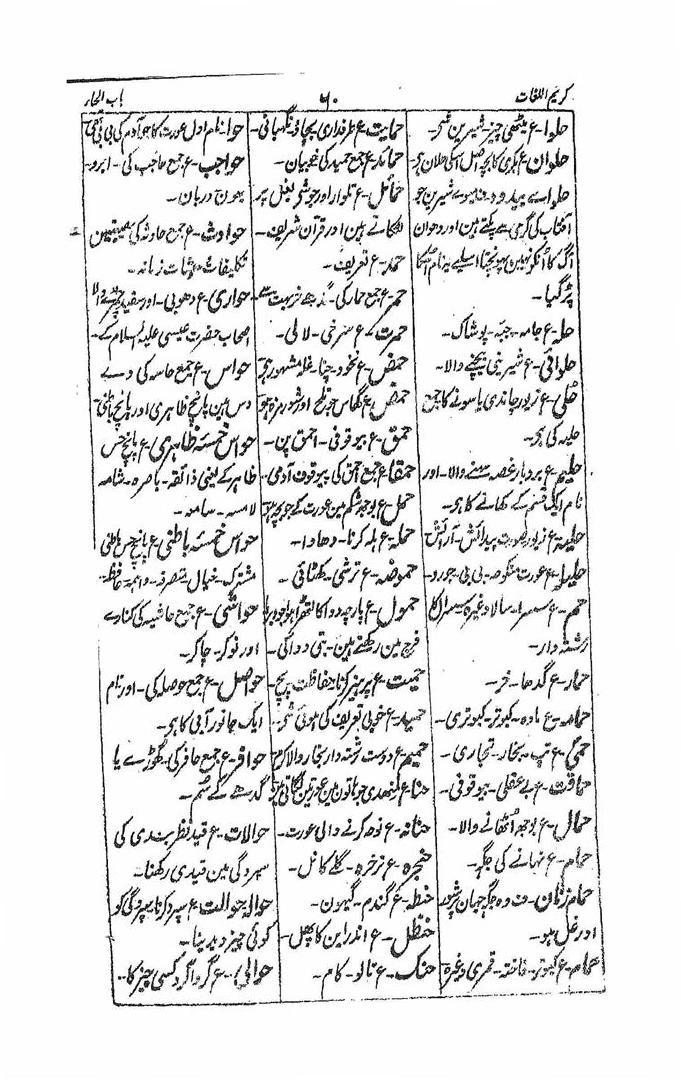 کریم اللغات
۶۰
باب الحار
حلوا - ع میٹھی چیز - شیرین
حلوان - ع بکری کا بچہ اصل اسکی حلان ہے
حلواے بیدود - ف میوے شیرین جو
آفتاب کی گرمی سے پکتے ہین اور دھوان
آگ کا انکو نہین پہونچتا اسلیے یہ نام اسکا
پڑ گیا -
حلہ - ع جامہ - جبّہ - پوشاک -
حلوائی - ع شیرینی بیچنے والا -
حُلی - ع زیور چاندی یا سونے کا جمع
حلیہ کی ہے -
حلیم - ع بردبار غصہ سہنے والا - اور
نام ایک قسم کے کھانے کا ہے -
حلیہ - ع زیور صورت پیدائش - آرائش
حلیلہ - ع عورت منکوحہ - بی بی - جورو -
حم - ع سسرا - سالا وغیرہ سسرال کا
رشتہ دار -
حمار - ع گدھا - خر -
حمامہ - ع مادہ - کبوتر - کبوتری -
حمیٰ - ع تپ - بخار - تجاری -
حماقت - ع بے عقلی - بیوقوفی -
حمال - ع بوجھ اٹھانے والا -
حمام - ع نہانے کی جگہ -
حمام زنان - ف وہ جگہ جہان پر شور
اور غل ہو -
حمام - ع کبوتر - فاختہ - قمری وغیرہ
حمایت - ع طرفداری - بچاؤ - نگہبانی -
حمائد - ع جمع حمید کی خوبیان -
حمائل - ع تلوار اور جو شی بغل پر
لٹکاتے ہین اور قرآن شریف -
حمد - ع تعریف -
حمر - ع جمع حمار کی - گدھے
حمرت - ع سرخی - لالی -
حمص - ع نخود - چنا - غلہ مشہور ہے
حمض - ع گھاس جو تلخ اور شور مزہ ہو
حمق - ع بیوقوفی - احمق پن -
حمقا - ع جمع احمق کی بیوقوف آدمی -
حمل - ع بوجھ شکم مین عورت کے جو بچہ ہو
حملہ - ع ہلہ کرنا - دھاوا -
حموضہ - ع ترشی - کھٹائی -
حمول - ع پارچہ دوا کا لتھڑا ہوا جو
فرج مین رکھتے ہین - بتی دوا کی -
حمیت - ع پرہیز کرنا حفاظت
حمید - ع خوبی تعریف کی ہوئی شے -
حمیم - ع دوست رشتہ دار بخار والا گرم
حنا - ع منہدی جو ہاتون مین عورتین لگاتی ہین
حنانہ - ع نوحہ کرنے والی عورت -
حنجرہ - ع نرخرہ - گلے کا نل -
حنطہ - ع گندم - گیہون -
حنظل - ع اندراین کا پھل -
حنک - ع تالو - کام -
حوا نام اول عورت کا جو آدم کی بی بی تھی
حواجب - ع جمع حاجب کی - ابرو -
بھون دربان -
حوادث - ع جمع حادثہ کی مصیبتین
تکلیفات زمانہ -
حواری - ع دھوبی - اور سفید
اصحاب حضرت عیسیٰ علیہ السلام کے -
حواس - ع جمع حاسہ کی وے
دس ہین پانچ ظاہری اور پانچ باطنی
حواس خمسہ ظاہری ع پانچ حس
ظاہر کے یعنی ذائقہ - باصرہ - شامہ
لامسہ - سامعہ -
حواس خمسہ باطنی ع پانچ حس باطنی
مشترک - خیال - متصرفہ - واہمہ حافظہ
حواشی - ع جمع حاشیہ کی کنارے
اور نوکر - چاکر -
حواصل - ع جمع حوصلہ کی - اور نام
ایک جانور آبی کا ہے -
حوافر - ع جمع حافر کی - گھوڑے یا
گدھے کے سُم -
حوالات - ع قید نظربندی کی
سپردگی مین قیدی رکھنا -
حوالہ حوالت - ع سپرد کرنا سپردگی کو
کوئی چیز دیدینا -
حوالی - ع گرداگرد کسی چیز کا -